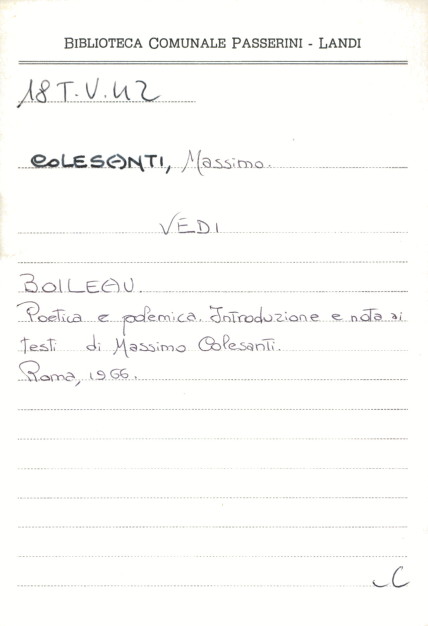 BIBLIOTECA COMUNALE PASSERINI - LANDI
18 T.V.42
COLESANTI, Massimo.
VEDI
BOILEAU.
Poetica e polemica. Introduzione e nota ai
testi di Massimo Colesanti.
Roma, 1966.
C